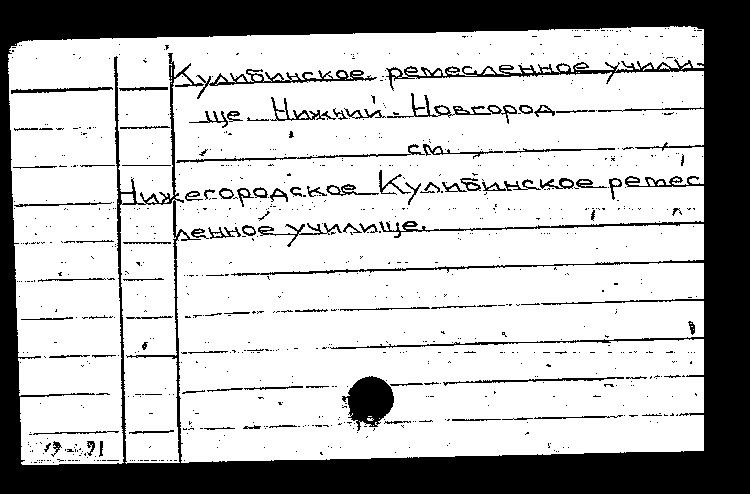 Кулибинское ремесленное учили-
ще. Нижний-Новгород
см.
Нижегородское Кулибинское ремес
ленное училище.